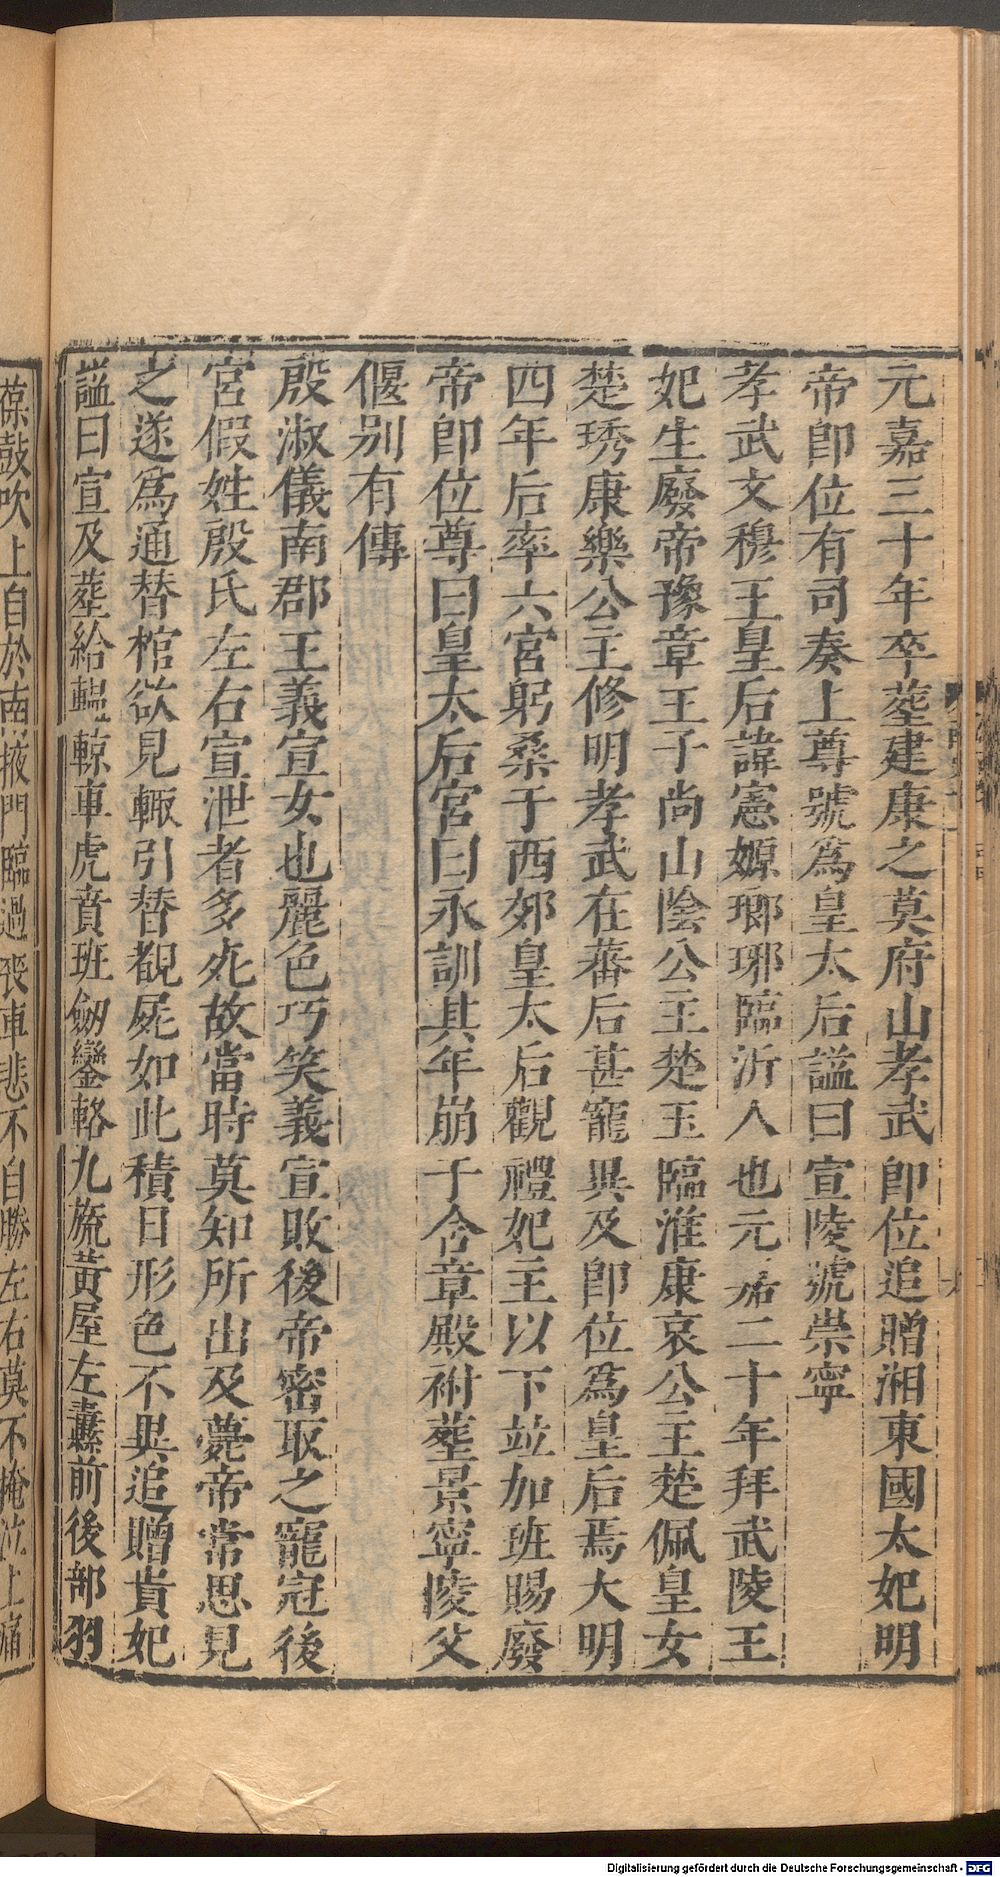 元嘉三十年卒葬建康之莫府山孝武即位追贈湘東國太妃明
帝即位有司奏上尊號為皇太后謚曰宣陵號崇寧
孝武文穆王皇后諱憲嫄瑯琊臨沂人也元嘉二十年拜武陵王
妃生廢帝豫章王子尚山陰公主楚玉臨淮康哀公主楚佩皇女
楚琇康樂公主修明孝武在蕃后甚寵異及即位為皇后焉大明
四年后率六宮躬桑于西郊皇太后觀禮妃主以下竝加班賜廢
帝即位尊曰皇太后宮曰永訓其年崩于含章殿祔葬景寧陵父
偃別有傳
殷淑儀南郡王義宣女也麗色巧笑義宣敗後帝密取之寵冠後
宮假姓殷氏左右宣泄者多死故當時莫知所出及薨帝常思見
之遂為通替棺欲見輒引替覩屍如此積日形色不異追贈貴妃
謚曰宣及葬給轀輬車虎賁班劒鑾輅九旒黃屋左纛前後部羽
葆鼓吹上自於南掖門臨過喪車悲不自勝左右莫不掩泣上痛
Digitalisierung gefördert durch die Deutsche Forschungsgemeinschaft - DFG